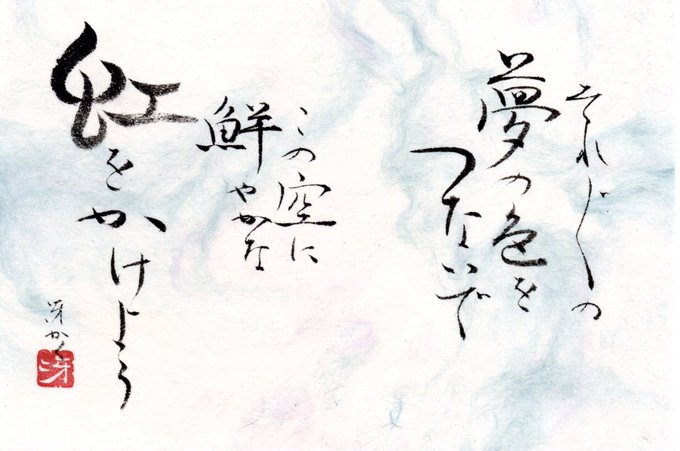 それぞれの
夢の色を
つないで
この空に
鮮やかな
虹をかけよう
冴かく
冴